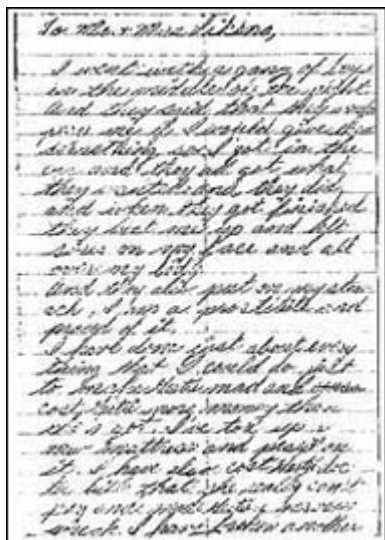 To Mr. & Mrs. Likens,
I went with a gang of boys
in the middle of the night
and they said that they would
pay me if I would give them
something so I got in the
car and they all got what
they wanted and they did
and when they got finished
they beat me up and left
sores on my face and all
over my body.
and they also put on my stom
ach, I am a prostitute and
proud of it.
I have done just about every
thing that I could do just
to make Gertie mad and
cost Gertie more money than
she's got. I've tore up a
new mattress and peaed on
it. I have also cost Gertie doc
tor bills that she really can't
pay and made Gertie a nervous
wreck. I have broken another